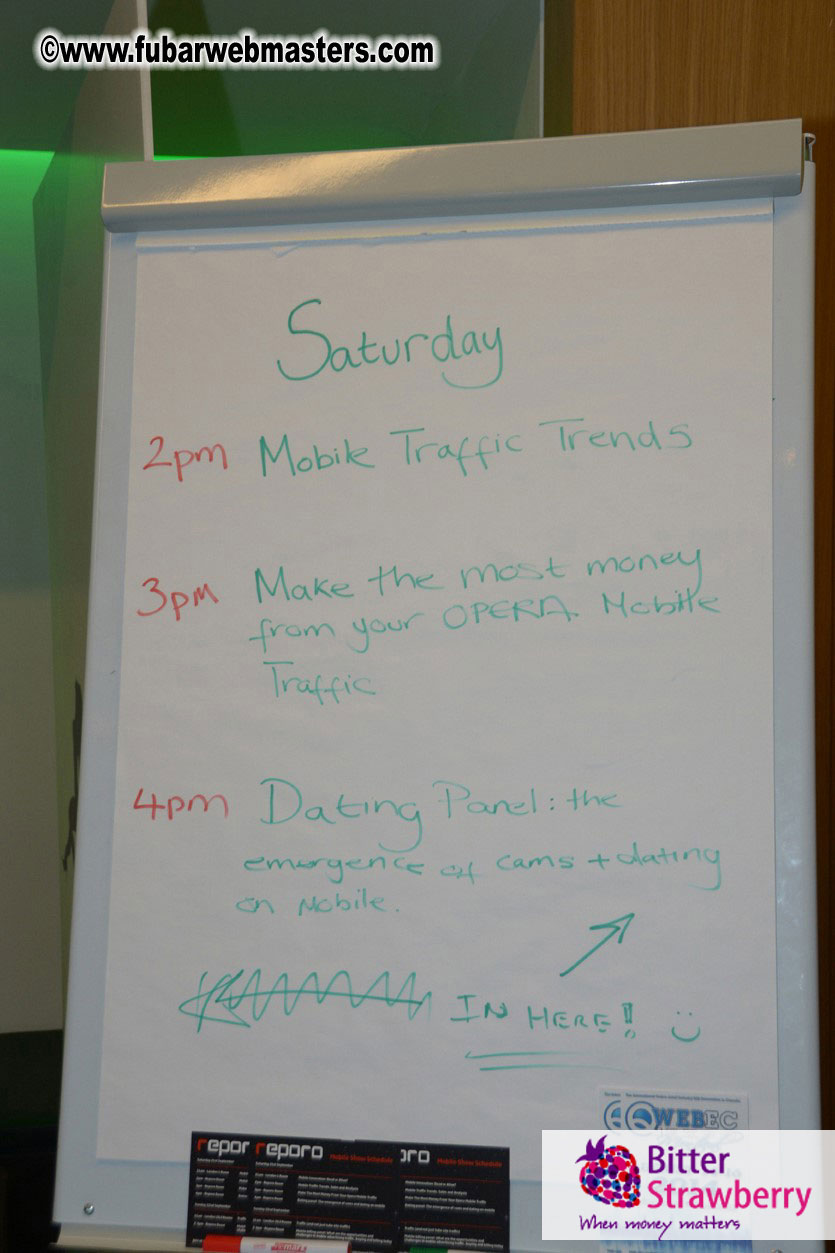 ©www.fubarwebmasters.com
Saturday
2pm Mobile Traffic Trends
3pm Make the most money
from your OPERA Mobile
Traffic
4pm Dating Panel: the
emergence of cams + dating
on Mobile.
IN HERE! :)
WEBEC
repor reporo oro
Mobile Show Schedule Mobile Show Schedule
Bitter
Strawberry
When money matters